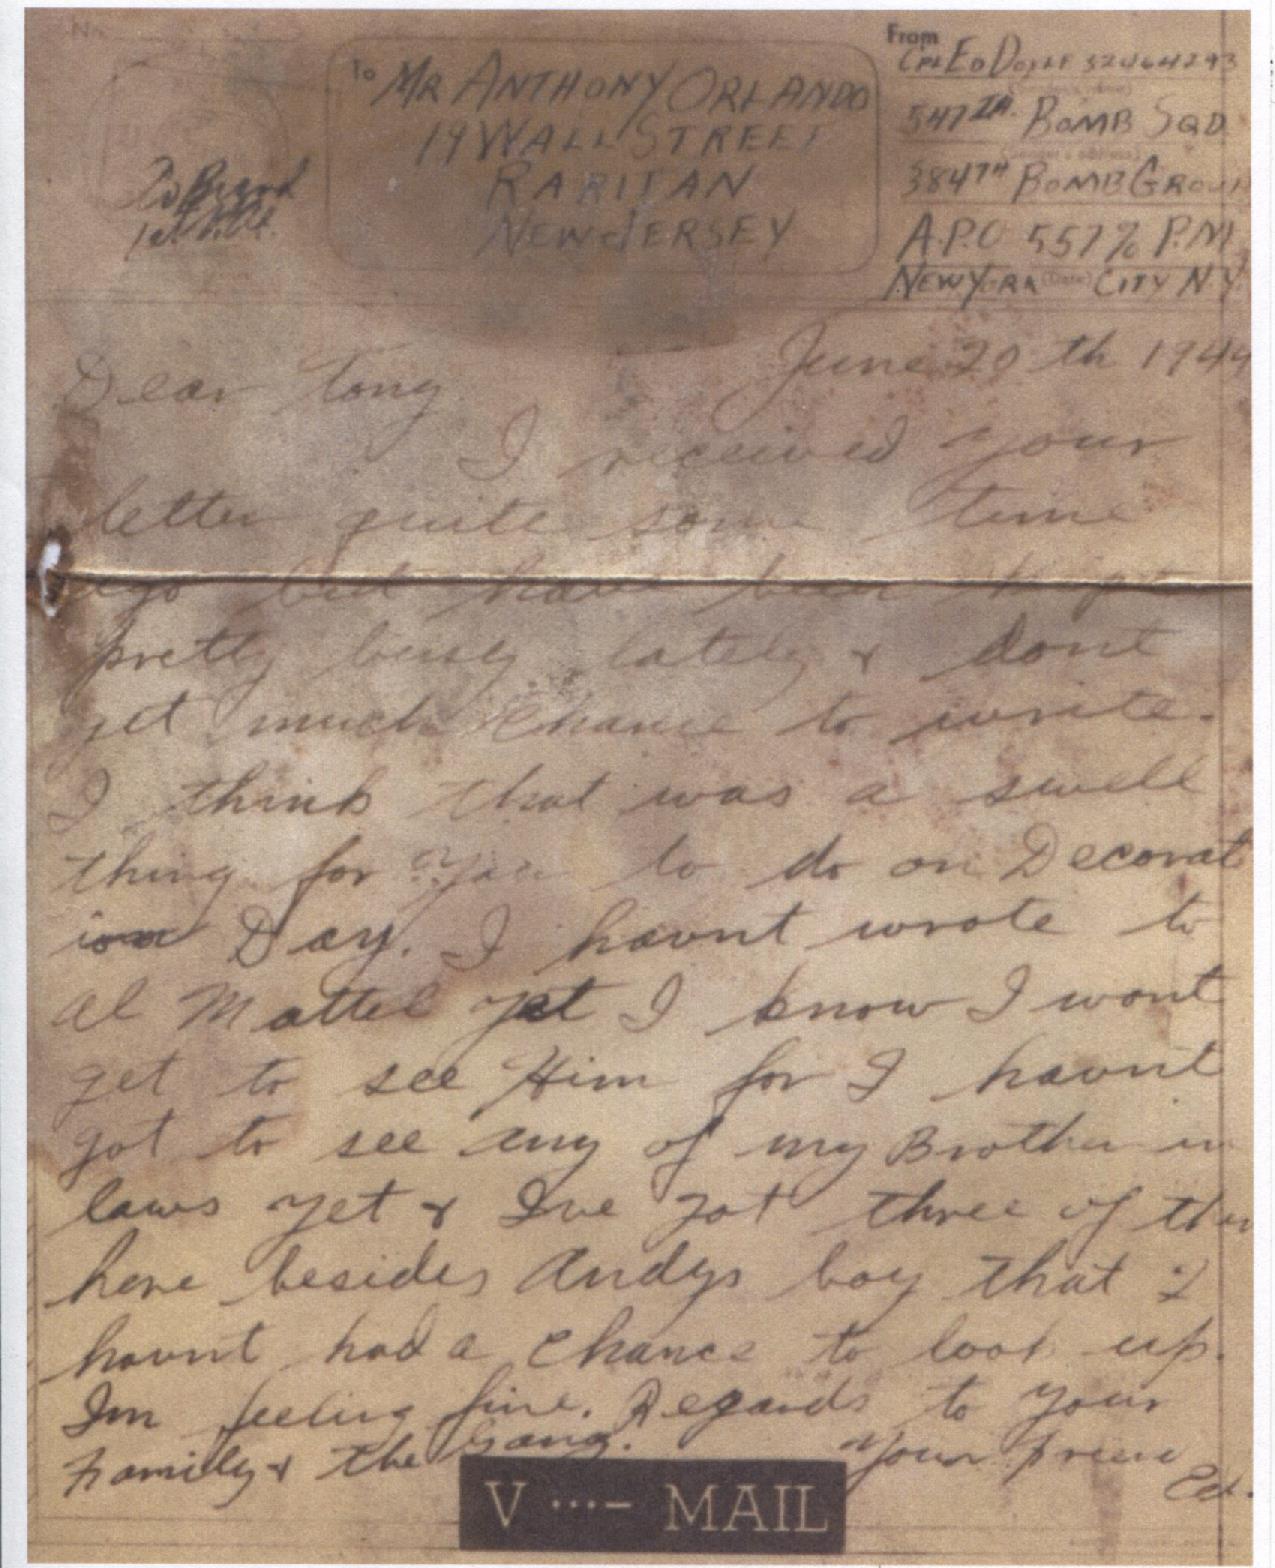 To
MR ANTHONY ORLANDO
19 WALL STREET
RARITAN
NEW JERSEY
From
CPL ED DOYLE
547TH. BOMB SQD
384TH BOMB GROUP
A.P.O 557 % P.M
NEW YORK CITY N.Y.
June 20 th 1944
Dear Tony
I received your
letter quite some time
ago but have been kept
pretty busy lately & dont
get much chance to write.
I think that was a swell
thing for you to do on Decorat
ion Day. I havnt wrote to
Al Mattel yet I know I wont
get to see Him for I havnt
got to see any of my Brother in
laws yet & Ive got three of them
here besides Andys boy that I
havnt had a chance to look up.
Im feeling fine. Regards to your
Family & the Gang.
Your friend
Ed.
V ···– MAIL